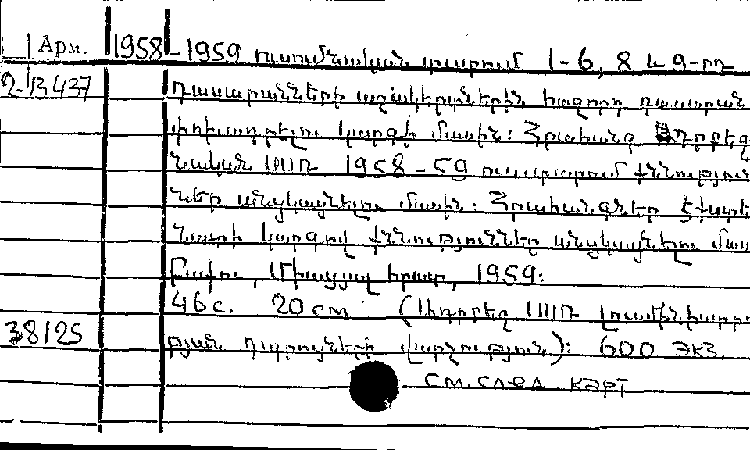 Арм. 1958-1959 ուսումնական տարում 1-6, 8 և 9-րդ
2-13437 դասարանների աշակերտներին հաջորդ դասարան
փոխադրելու կարգի մասին: Հրահանգ
նական ՍՍՌ 1958-59 ուստարում քննություն
ներ անցկացնելու մասին: Հրահանգներ
կարգով քննություններ անցկացնելու մաս
Բաքու, Միացյալ հրատ, 1959:
46 с. 20 см (Ադրբեջ ՍՍՌ լուսմինիստրու
38125 թյան դպրոցների վարչություն): 600 экз.
см. след. карт